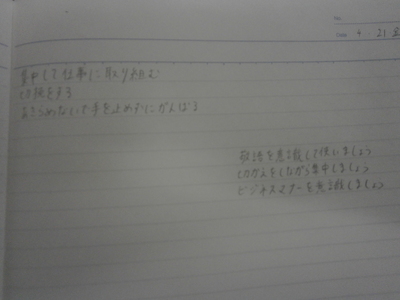 No.
Date 4 21
集中して仕事に取り組む
切換をする
あきらめないで手を止めずにがんばる
敬語を意識して使いましょう
切かえをしながら集中しましょう
ビジネスマナーを意識しましょう